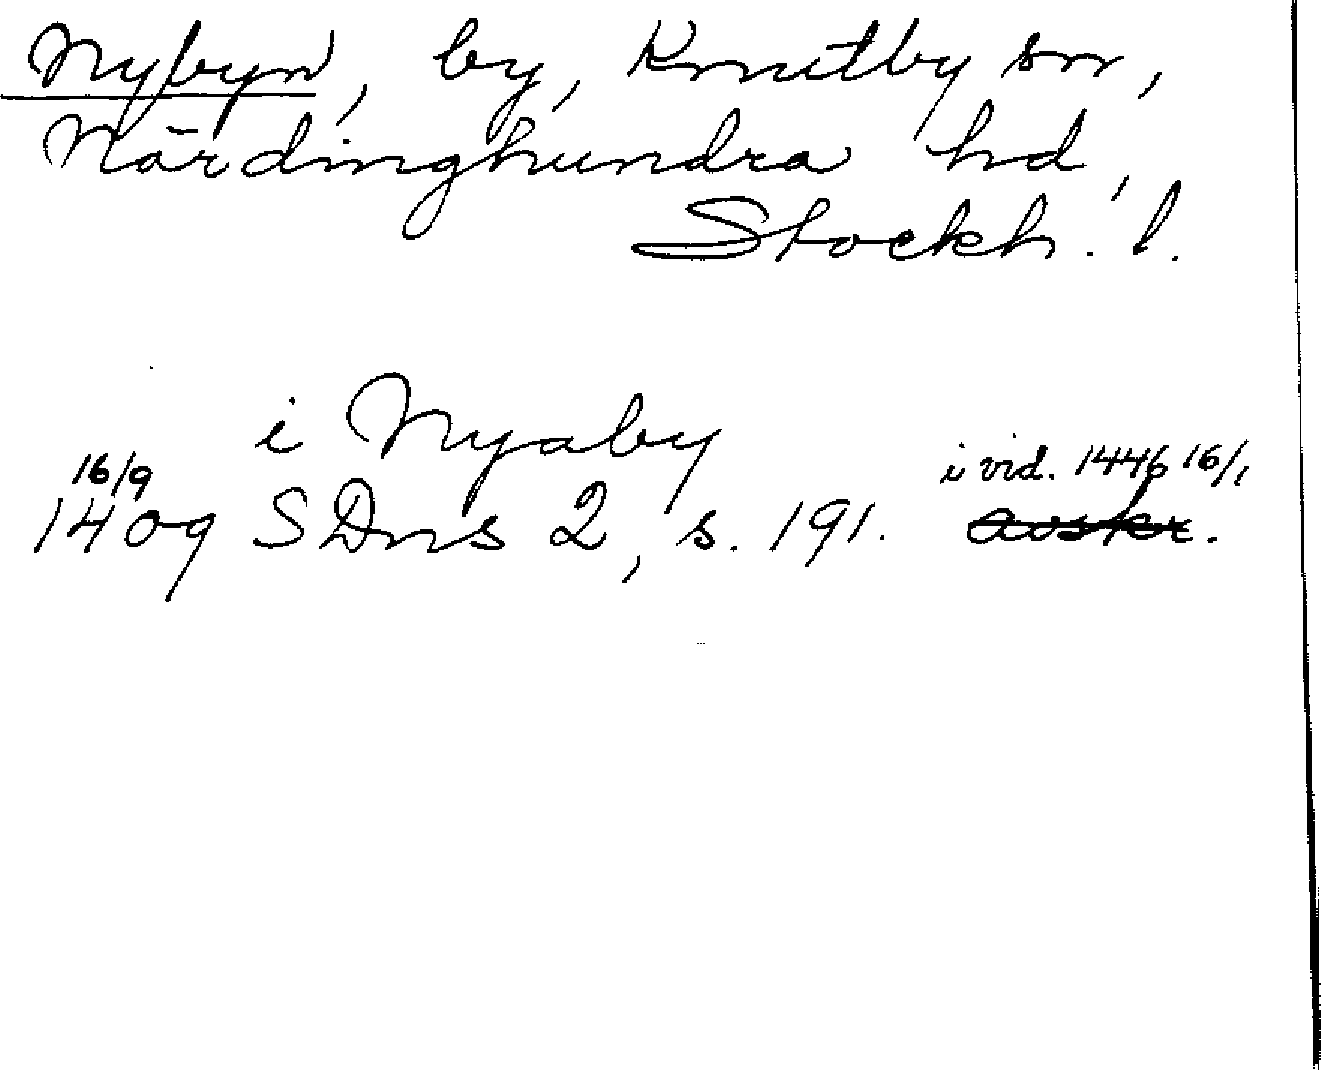 Nybyn, by, Knutby sn,
Närdinghundra hd,
Stockh. l.
i Nyaby
16/9 i vid. 1446 16/1
1409 SDns 2, s. 191. avskr.